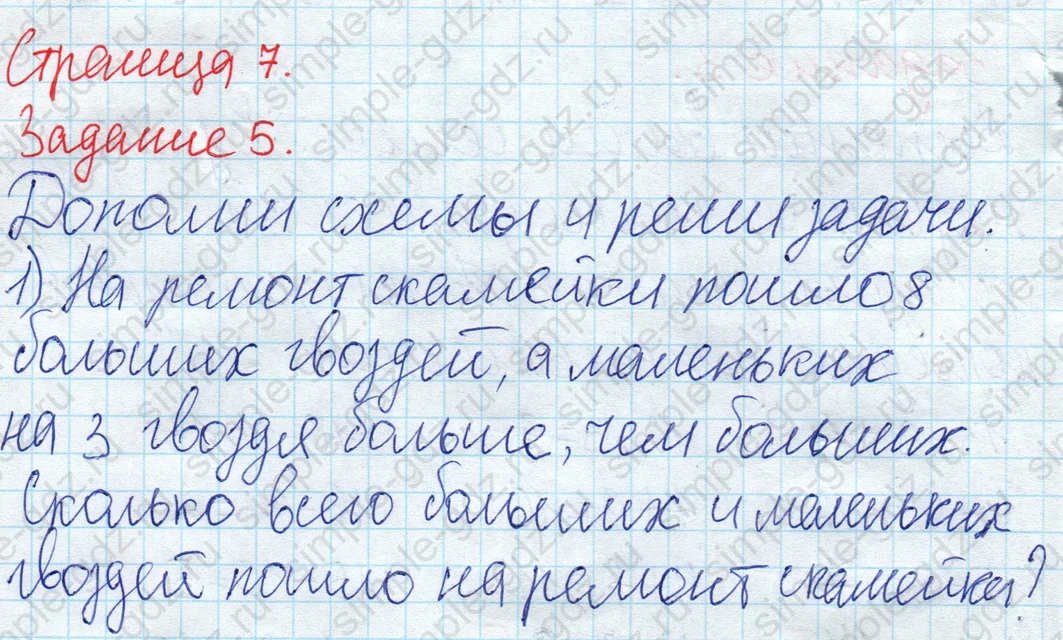 Страница 7.
Задание 5.
Дополни схемы и реши задачи.
1) На ремонт скамейки пошло 8
больших гвоздей, а маленьких
на 3 гвоздя больше, чем больших.
Сколько всего больших и маленьких
гвоздей пошло на ремонт скамейки?
simple-gdz.ru